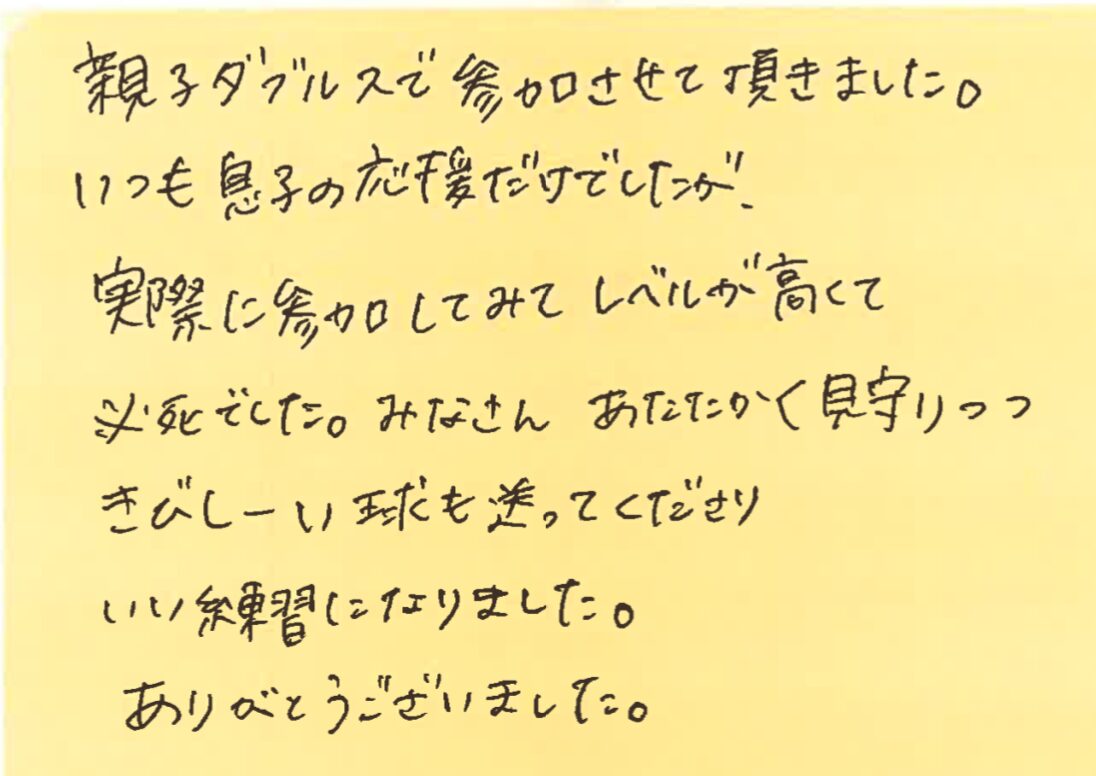 親子ダブルスで参加させて頂きました。
いつも息子の応援だけでしたが、
実際に参加してみてレベルが高くて
必死でした。みなさん あたたかく見守りつつ
きびしーい球も送ってくださり
いい練習になりました。
ありがとうございました。